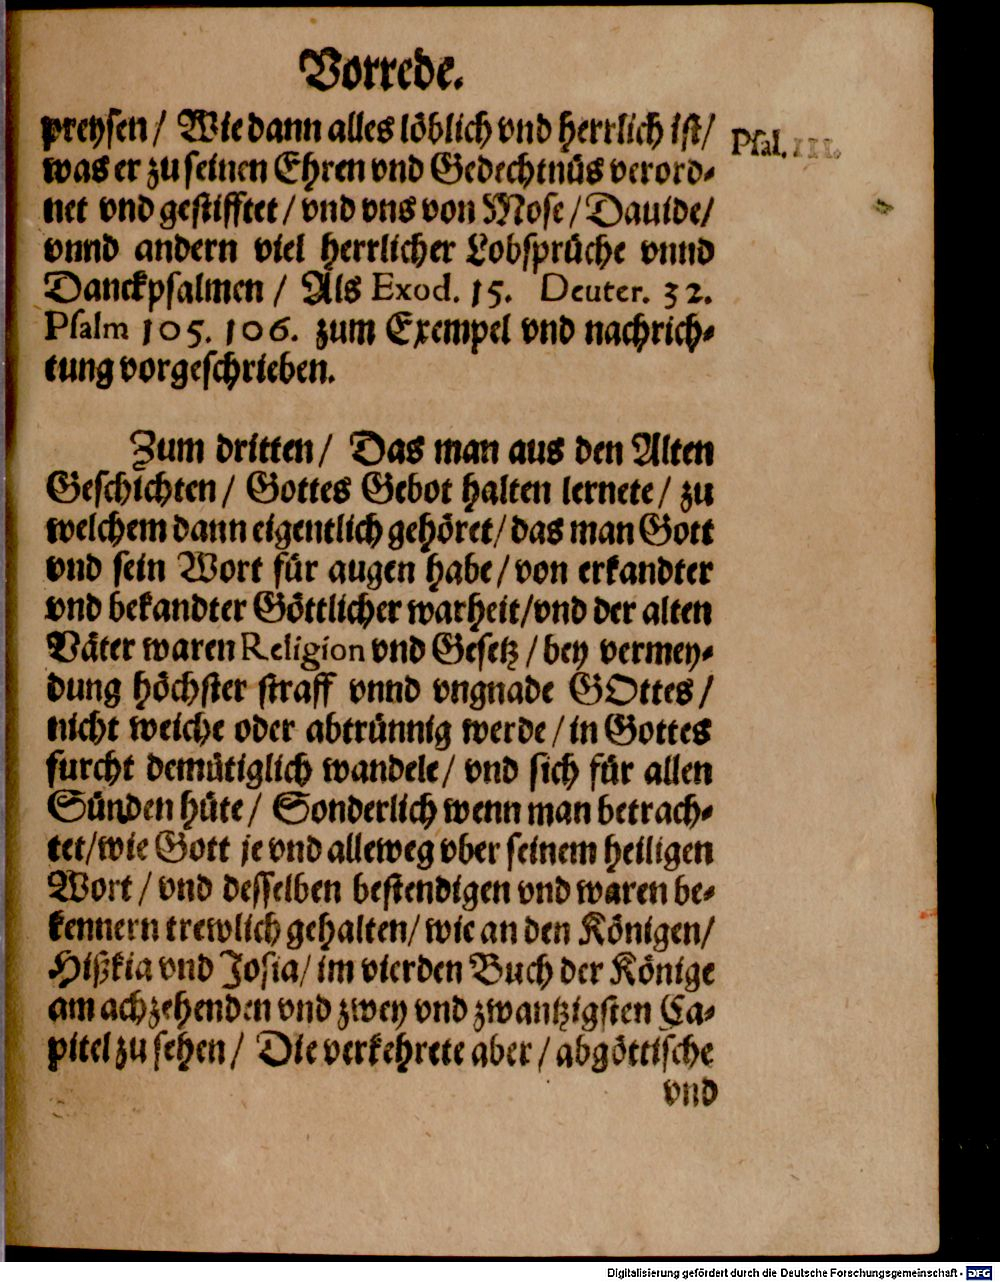 Vorrede.
preysen / Wie dann alles löblich vnd herrlich ist /
Psal. III.
was er zu seinen Ehren vnd Gedechtnüs verord-
net vnd gestifftet / vnd vns von Mose / Dauide /
vnnd andern viel herrlicher Lobsprüche vnnd
Danckpsalmen / Als Exod. 15. Deuter. 32.
Psalm 105. 106. zum Exempel vnd nachrich-
tung vorgeschrieben.
Zum dritten / Das man aus den Alten
Geschichten / Gottes Gebot halten lernete / zu
welchem dann eigentlich gehöret / das man Gott
vnd sein Wort für augen habe / von erkandter
vnd bekandter Göttlicher warheit / vnd der alten
Väter waren Religion vnd Gesetz / bey vermey-
dung höchster straff vnnd vngnade GOttes /
nicht weiche oder abtrünnig werde / in Gottes
furcht demütiglich wandele / vnd sich für allen
Sünden hüte / Sonderlich wenn man betrach-
tet / wie Gott je vnd alleweg vber seinem heiligen
Wort / vnd desselben bestendigen vnd waren be-
kennern trewlich gehalten / wie an den Königen /
Hißkia vnd Josia / im vierden Buch der Könige
am achzehenden vnd zwey vnd zwantzigsten Ca-
pitel zu sehen / Die verkehrete aber / abgöttische
vnd
Digitalisierung gefördert durch die Deutsche Forschungsgemeinschaft - DFG